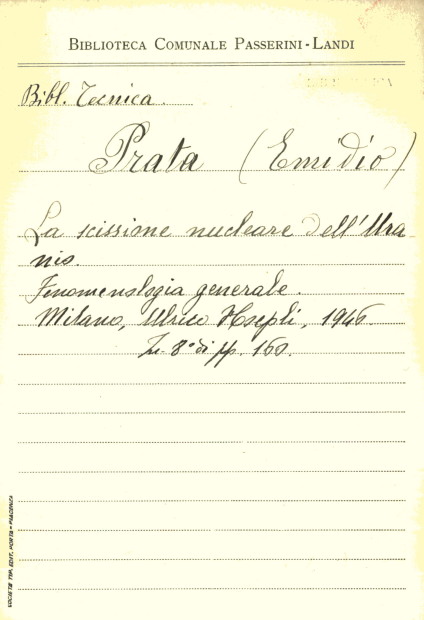 BIBLIOTECA COMUNALE PASSERINI-LANDI
Bibl. Tecnica
Prata (Emidio)
La scissione nucleare dell'Ura
nio.
Fenomenologia generale.
Milano, Ulrico Hoepli, 1946.
In-8° di pp. 160.
SOCIETÀ TIP. EDIT. PORTA - PIACENZA